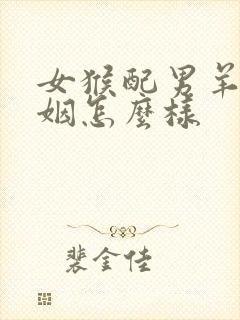 女猴配男羊
姻怎麼樣
裴金佳